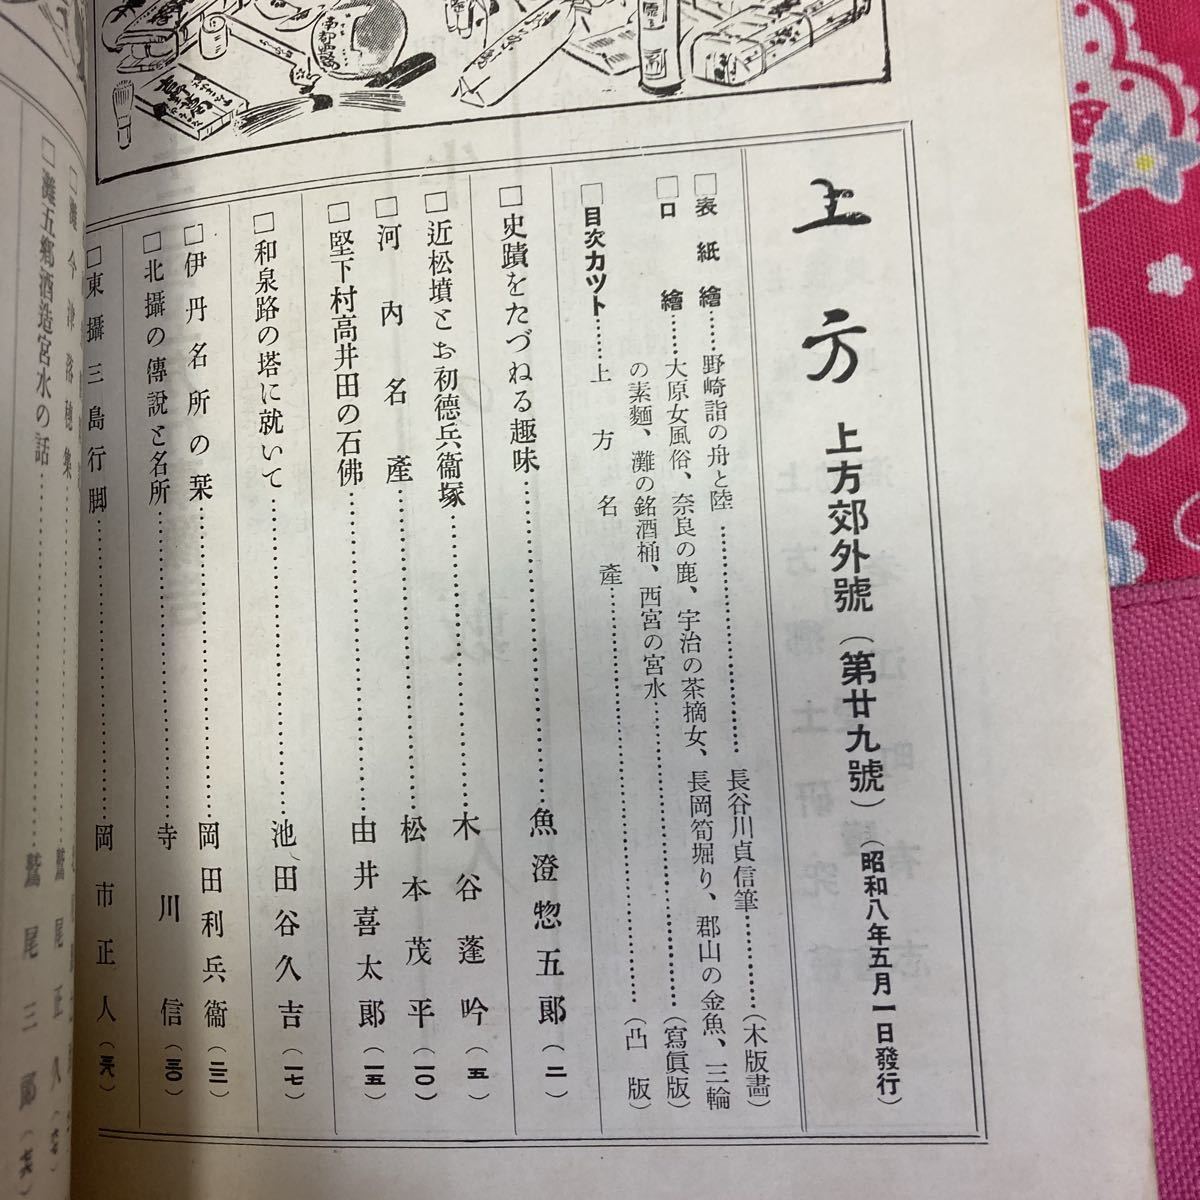 上方 上方郊外號(第廿九號)(昭和八年五月一日發行)
□表紙繪……野崎詣の舟と陸……………長谷川貞信筆………(木版畫)
□口繪……大原女風俗、奈良の鹿、宇治の茶摘女、長岡筍堀り、郡山の金魚、三輪
の素麵、灘の銘酒桶、西宮の宮水……………(寫眞版)
□目次カツト……上方名產……………(凸版)
□史蹟をたづねる趣味……………魚澄惣五郎(二)
□近松墳とお初德兵衞塚……………木谷蓬吟(五)
□河內名產……………松本茂平(一〇)
□堅下村高井田の石佛……………由井喜太郎(一五)
□和泉路の塔に就いて……………池田谷久吉(一七)
□伊丹名所の栞……………岡田利兵衞(二三)
□北攝の傳說と名所……………寺川信(三〇)
□東攝三島行脚……………岡市正人(三八)
□灘今津落穗集……………鷲尾正久
□灘五鄕酒造宮水の話……………鷲尾三郞
南都墨